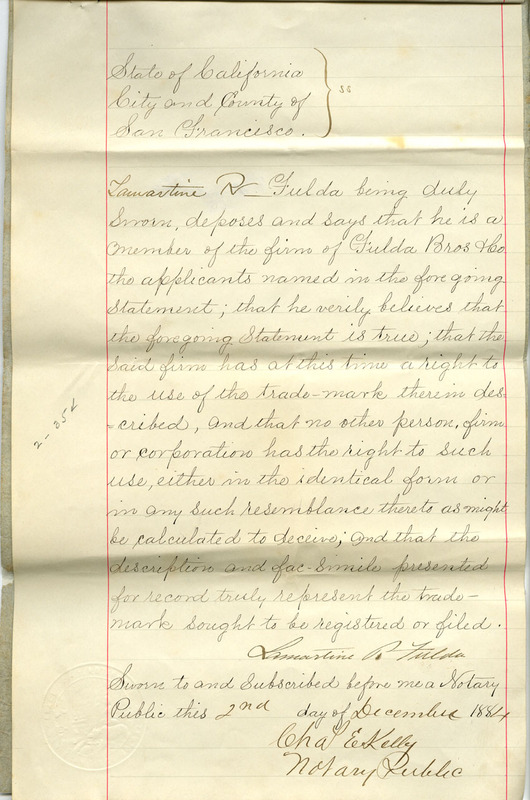 State of California
City and County of
San Francisco.
SS
Lamartine R Fulda being duly
Sworn, deposes and says that he is a
member of the firm of Fulda Bros & Co
the applicants named in the foregoing
Statement; that he verily believes that
the foregoing Statement is true; that the
said firm has at this time a right to
the use of the trade-mark therein des-
-cribed, and that no other person, firm
or corporation has the right to such
use, either in the identical form or
in any such resemblance thereto as might
be calculated to deceive; and that the
description and fac-simile presented
for record truly represent the trade-
mark sought to be registered or filed.
Lamartine R Fulda
Sworn to and Subscribed before me a Notary
Public this 2nd day of December 1884
Chas E Kelly
Notary Public